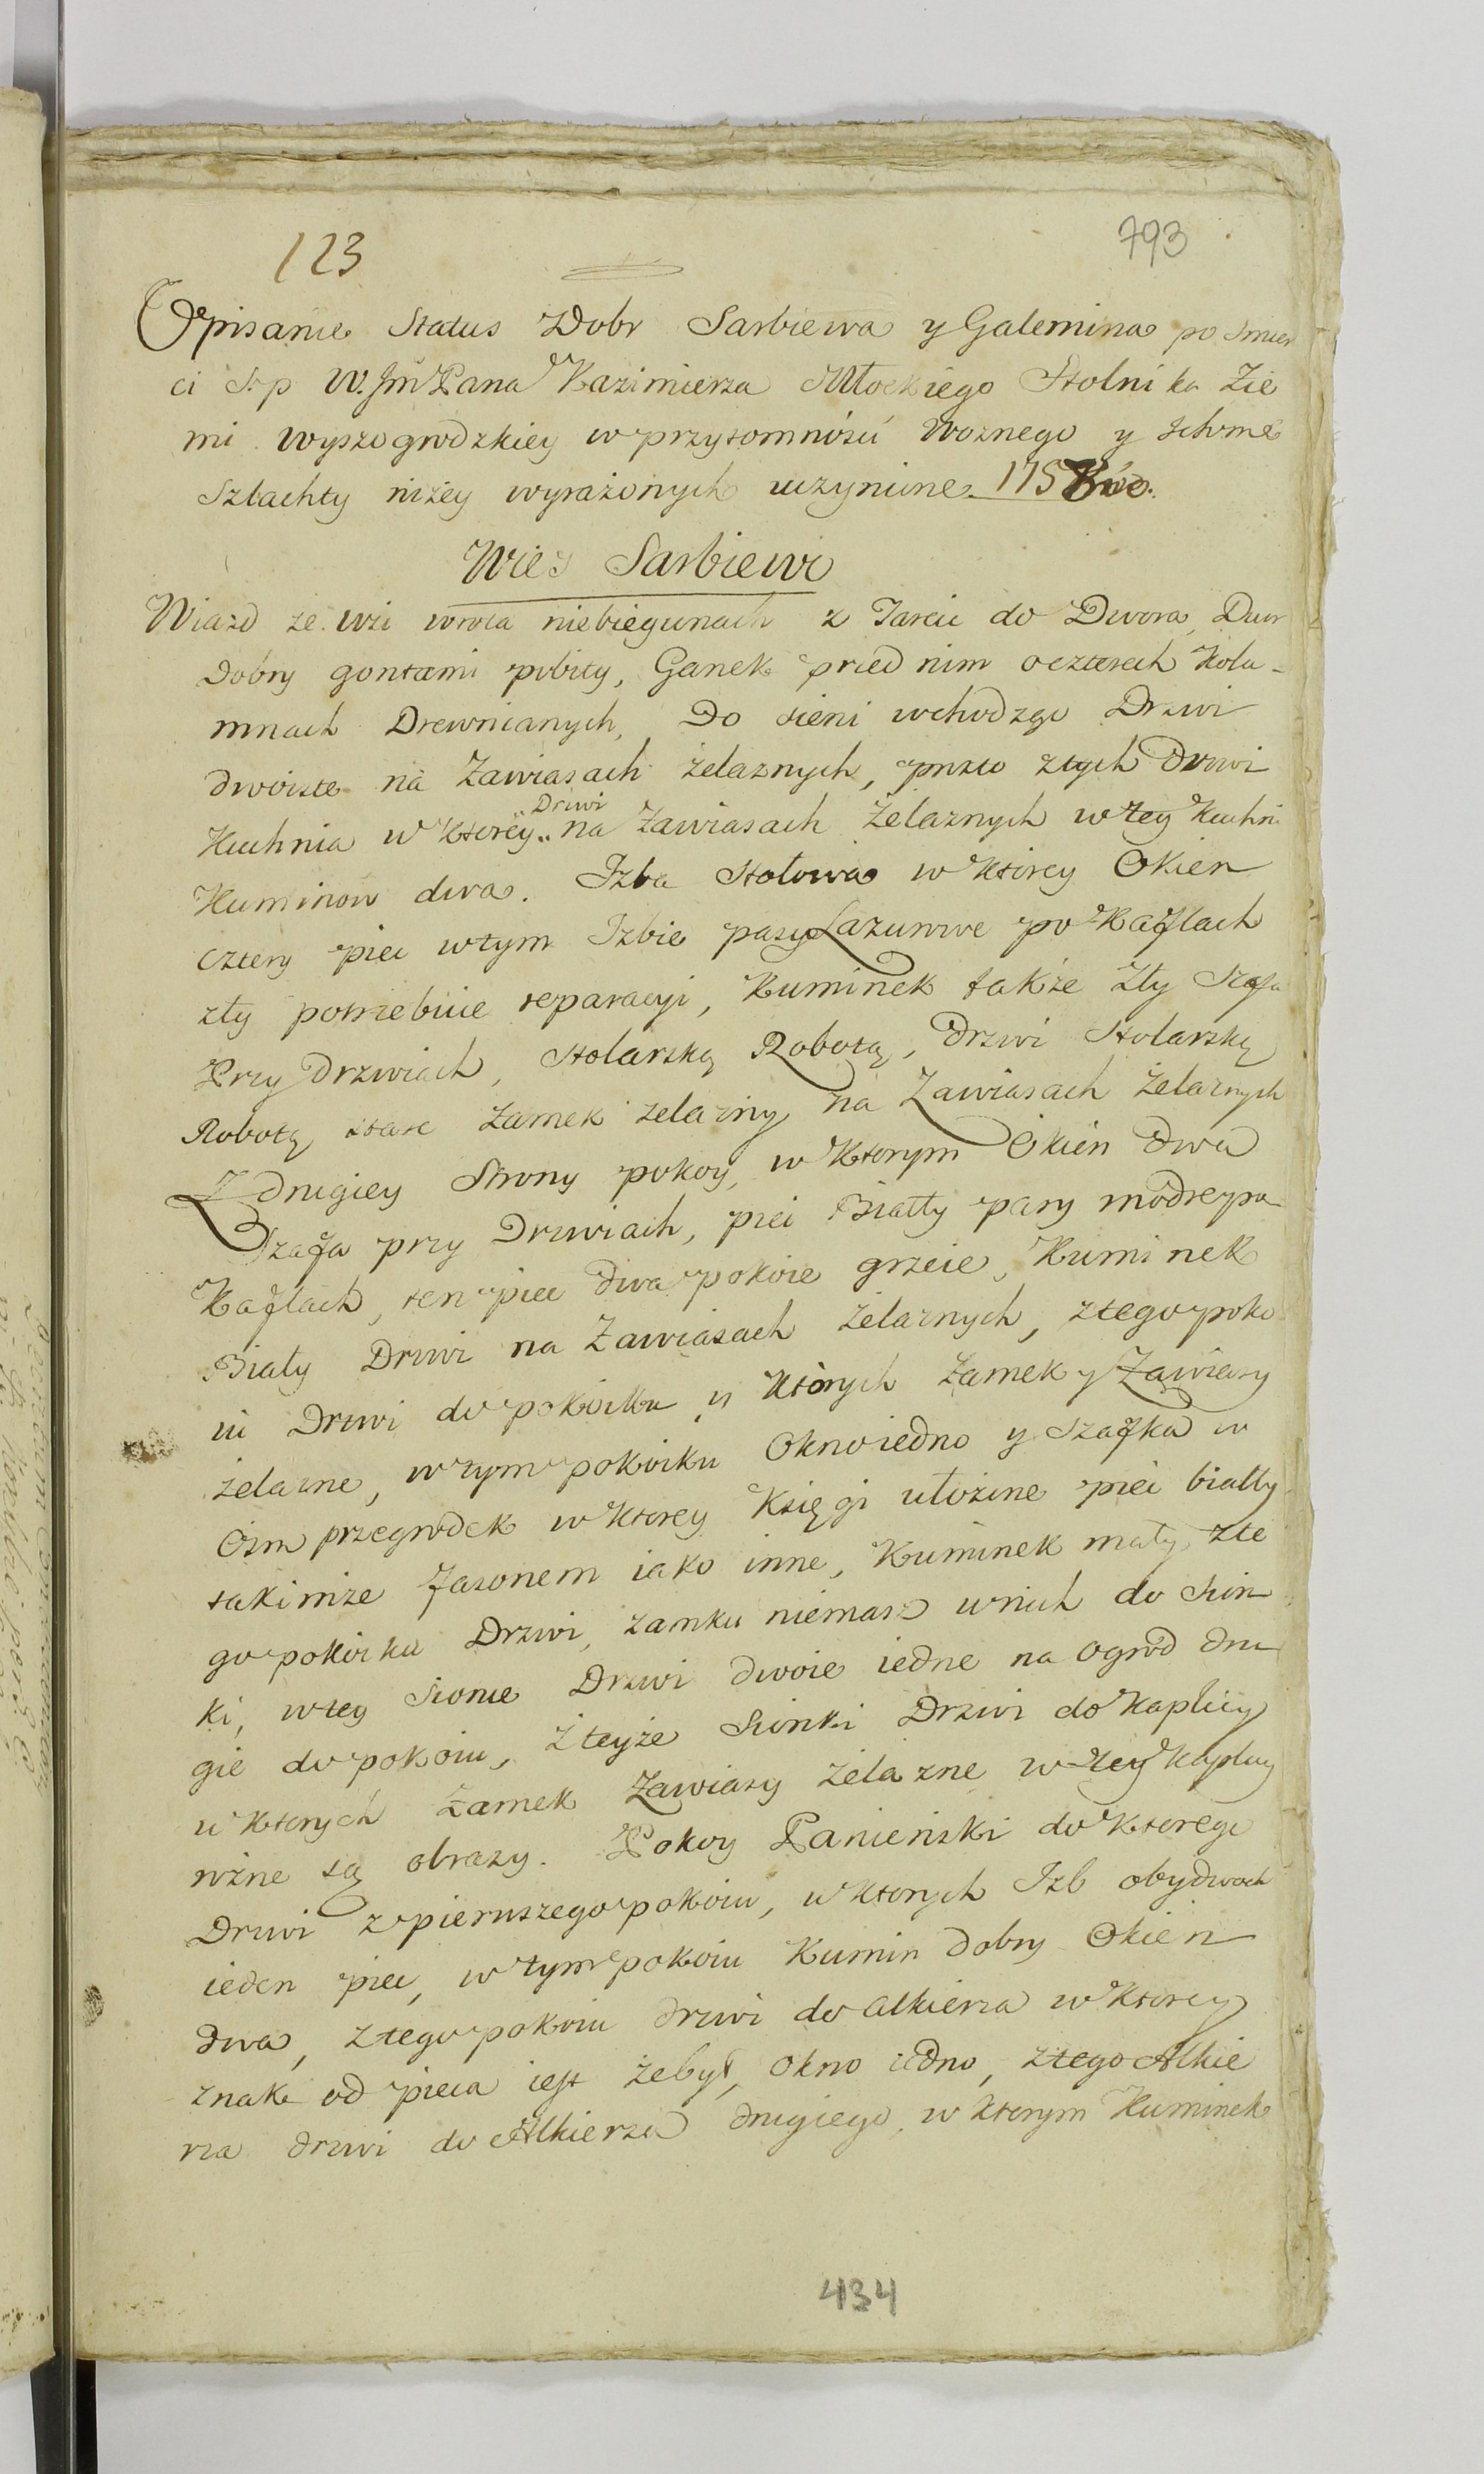 123
793
Opisanie Status Dobr Sarbiewa y Galemina po Smier
ci Sp W. Jm Pana Kazimierza Młockiego Stolnika Zie
mi Wyszogrodzkiey w przytomności Woznego y
Szlachty niżey wyrażonych uczynione 1758
Wieś Sarbiewo
Wiazd ze wsi wrota niebiegunach z Tarcic do Dwora, Dwor
Dobry gontami pobity, Ganek przed nim o czterech Kolu-
mnach Drewnianych, Do sieni wchodząc Drzwi
dwoiste na Zawiasach żelaznych, prosto z tych Drzwi
Kuchnia w ktorey Drzwi na Zawiasach Żelaznych w tey Kuchni
Kuminow dwa. Izba Stołowa w ktorey Okien
cztery piec w tym Izbie pasy Lazurowe po Kaflach
zły potrzebuie reparacyi, Kuminek także Zły Szafa
Przy Drzwiach, Stolarską Robotą, Drzwi Stolarską
Robotą stare Zamek zelazny na Zawiasach Żelaznych
Z drugiey Strony pokoy, w Ktorym Okien Dwa
Szafa przy Drzwiach, piec Biały pasy modre po
Kaflach, ten piec dwa pokoie grzeie, Kuminek
Biały Drzwi na Zawiasach Żelaznych, z tego poko
iu Drzwi do pokoiku u Których Zamek y Zawiasy
żelazne, w tym pokoiku Okno iedno y Szafka w
Ośm przegrodek w Ktorey Księgi ułożone piec biały
takimże Fasonem iako inne, Kuminek mały, z te
go pokoiku Drzwi, zamku niemasz u nich do Sion
ki, w tey Sionce Drzwi Dwoie iedne na ogrod dru
gie do pokoiu, z teyże Sionki Drzwi do Kaplicy
u Ktorych Zamek Zawiasy żelazne w tey Kaplicy
rożne są obrazy. Pokoy Panieński do Ktorego
Drzwi z pierwszego pokoiu, w Ktorych Izb obydwoch
ieden piec, w tym pokoiu Kumin dobry Okien
Dwa, z tego pokoiu drzwi do Alkierza w Ktorey
znak od pieca iest że był, okno iedno, z tego Alkie
rza drzwi do Alkierza drugiego, w ktorym Kuminek
434